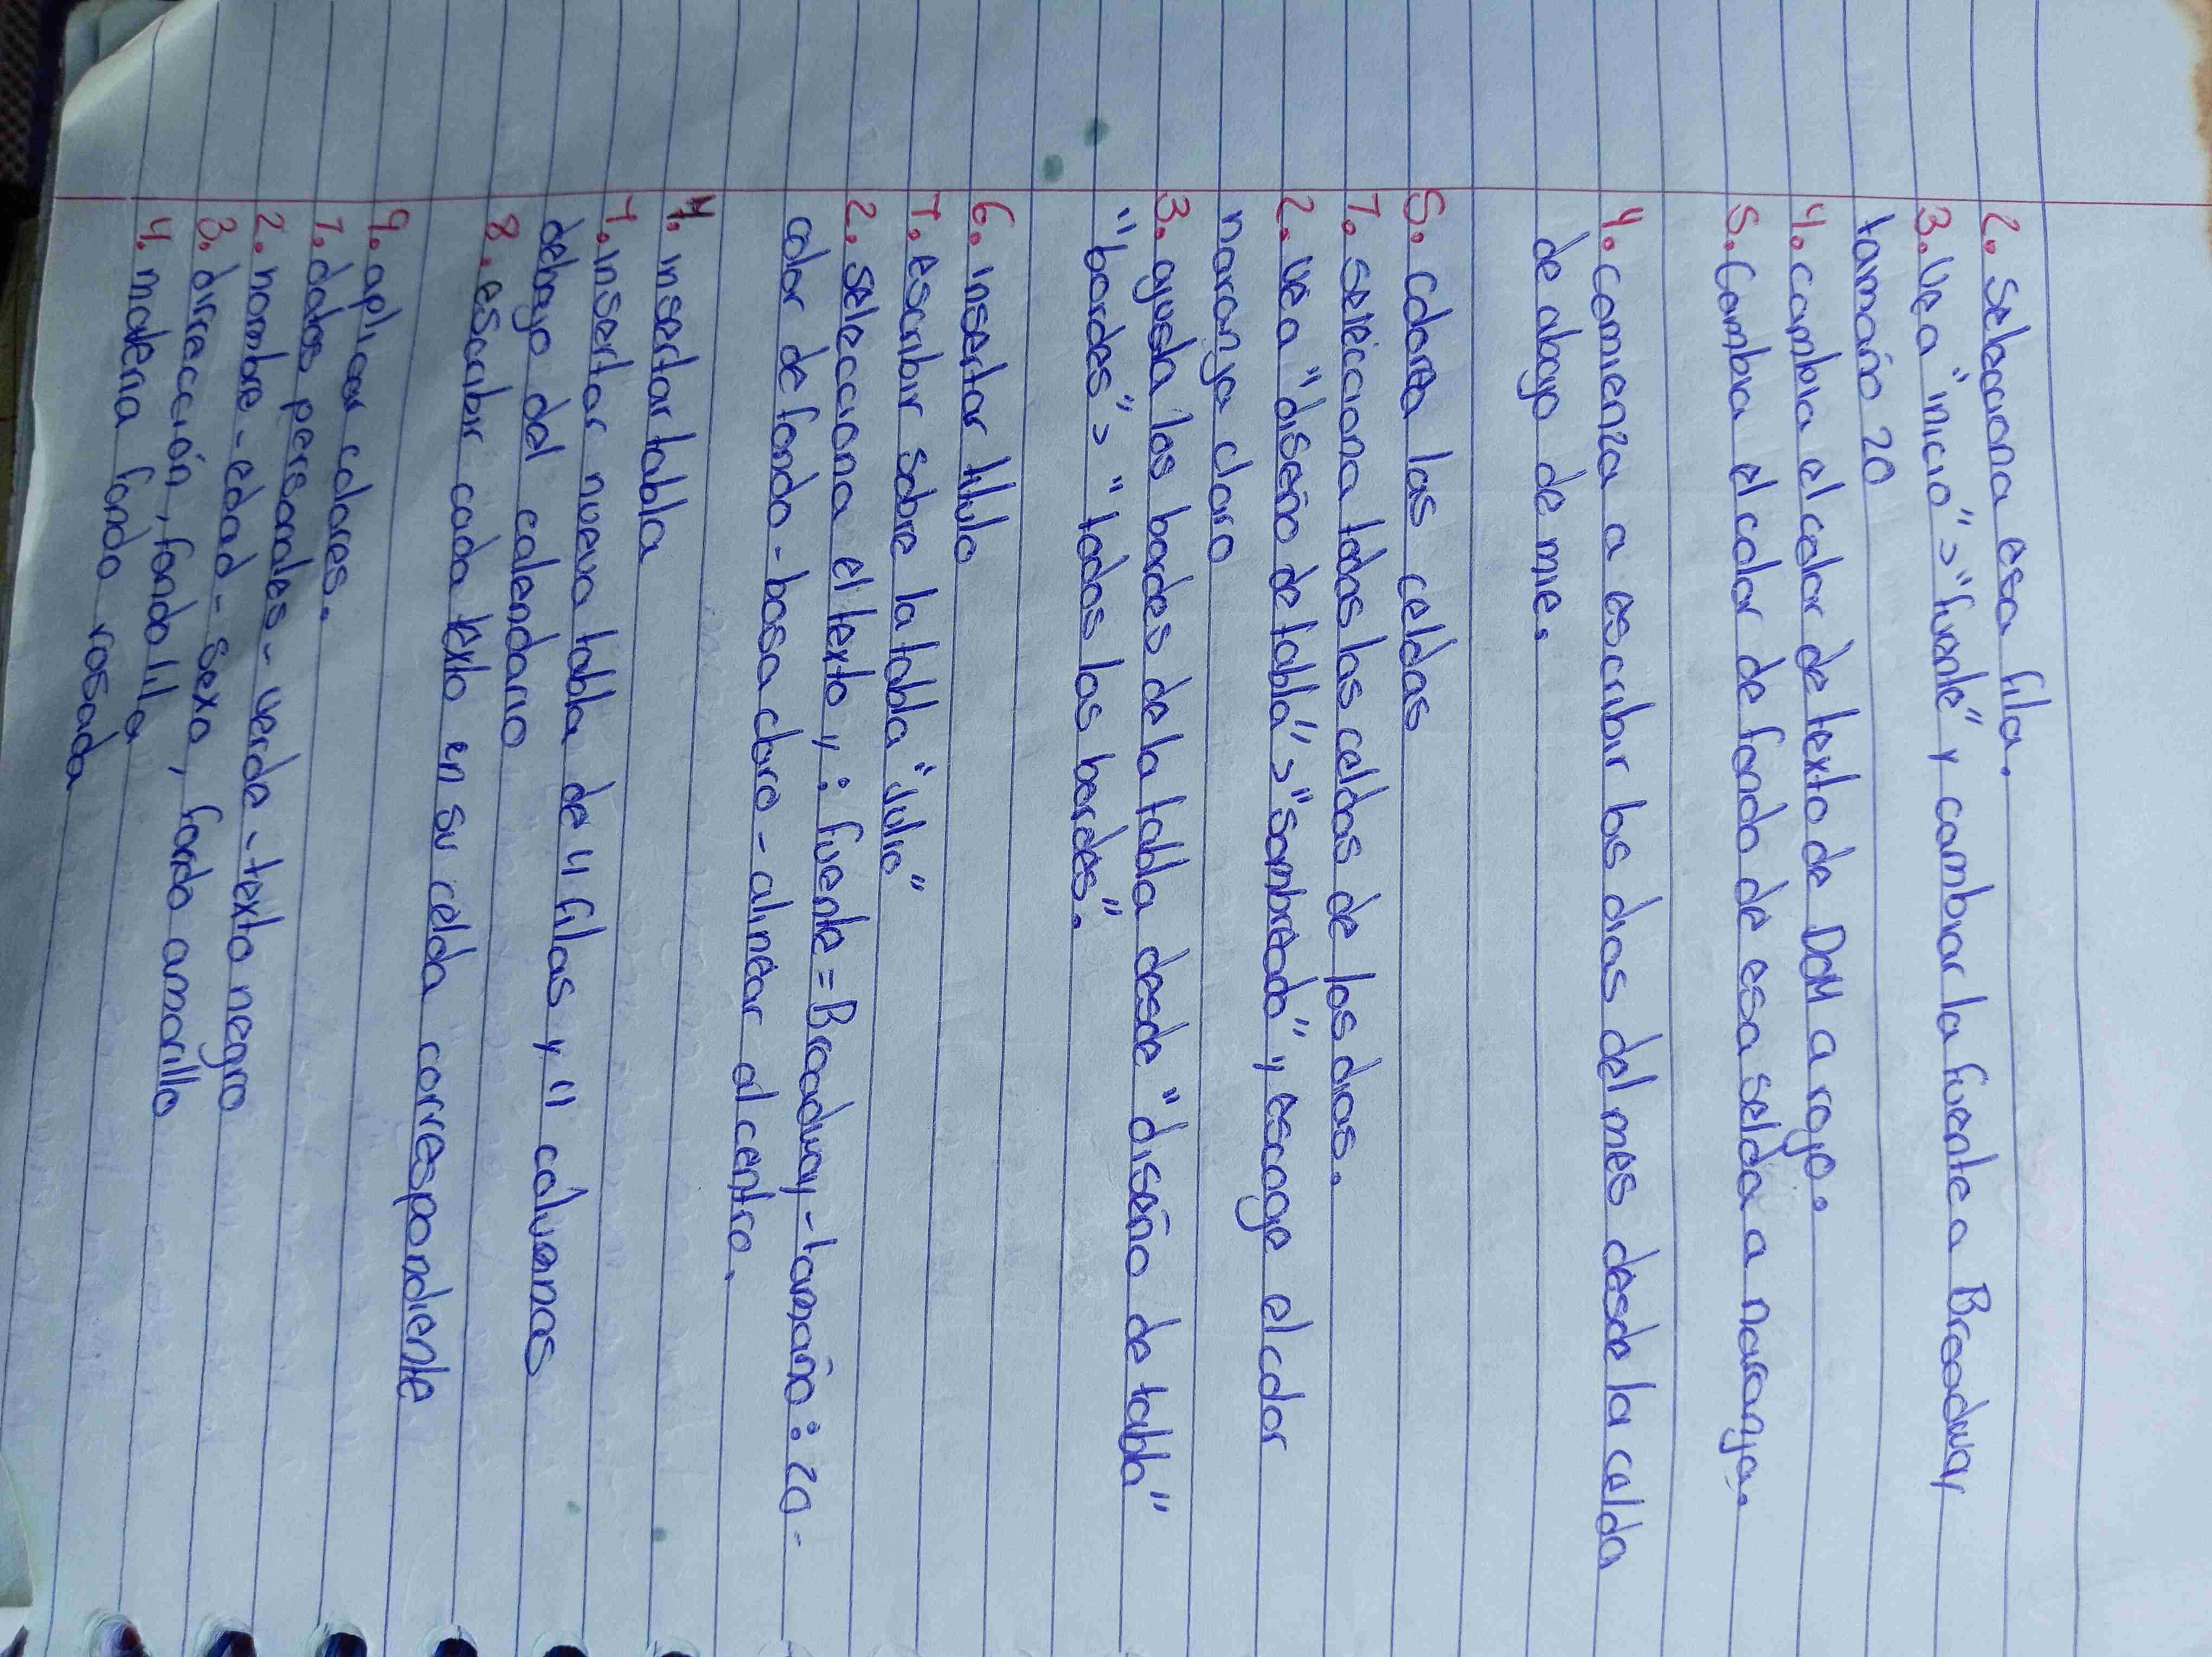 2. Selecciona esa fila.
3. Ve a "inicio" > "fuente" y cambiar la fuente a Broadway
tamaño 20
4. cambia el color de texto de DOM a rojo.
5. Cambia el color de fondo de esa selda a naranja.
4. comienza a escribir los dias del mes desde la celda
de abajo de mie.
5. colorea las celdas
1. selecciona todas las celdas de los dias.
2. Ve a "diseño de tabla" > "sombreado" y escoge el color
naranja claro
3. ajusta los bordes de la tabla desde "diseño de tabla"
"bordes" > "todos los bordes".
6. insertar titulo
1. escribir sobre la tabla "Julio"
2. selecciona el texto y: fuente = Broadway - tamaño: 20 -
color de fondo - bosa claro - alinear al centro.
7. insertar tabla
1. insertar nueva tabla de 4 filas y 4 colupnas
debajo del calendario
8. escribir cada texto en su celda correspondiente
9. aplicar colores.
1. datos personales - verde - texto negro
2. nombre - edad - sexo, fondo amarillo
3. dirección, fondo lila
4. materia fondo rosada